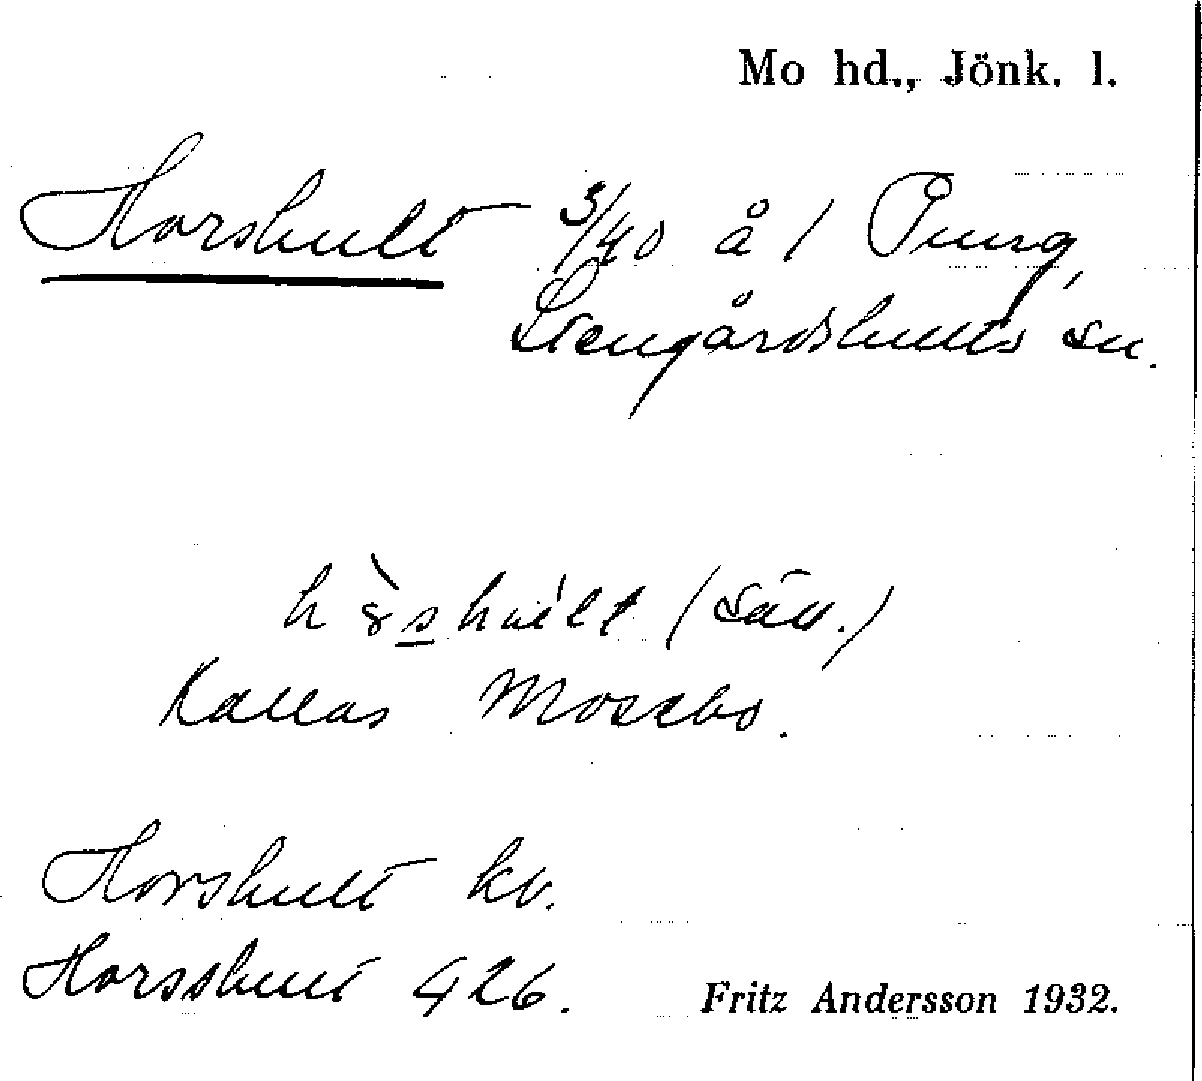 Mo hd., Jönk. l.
Horshult 3/40 å 1 Pung,
Stengårdshults sn.
(säll.)
Kallas Mosebo.
Horshult kv.
Horsshult G 26.
Fritz Andersson 1932.